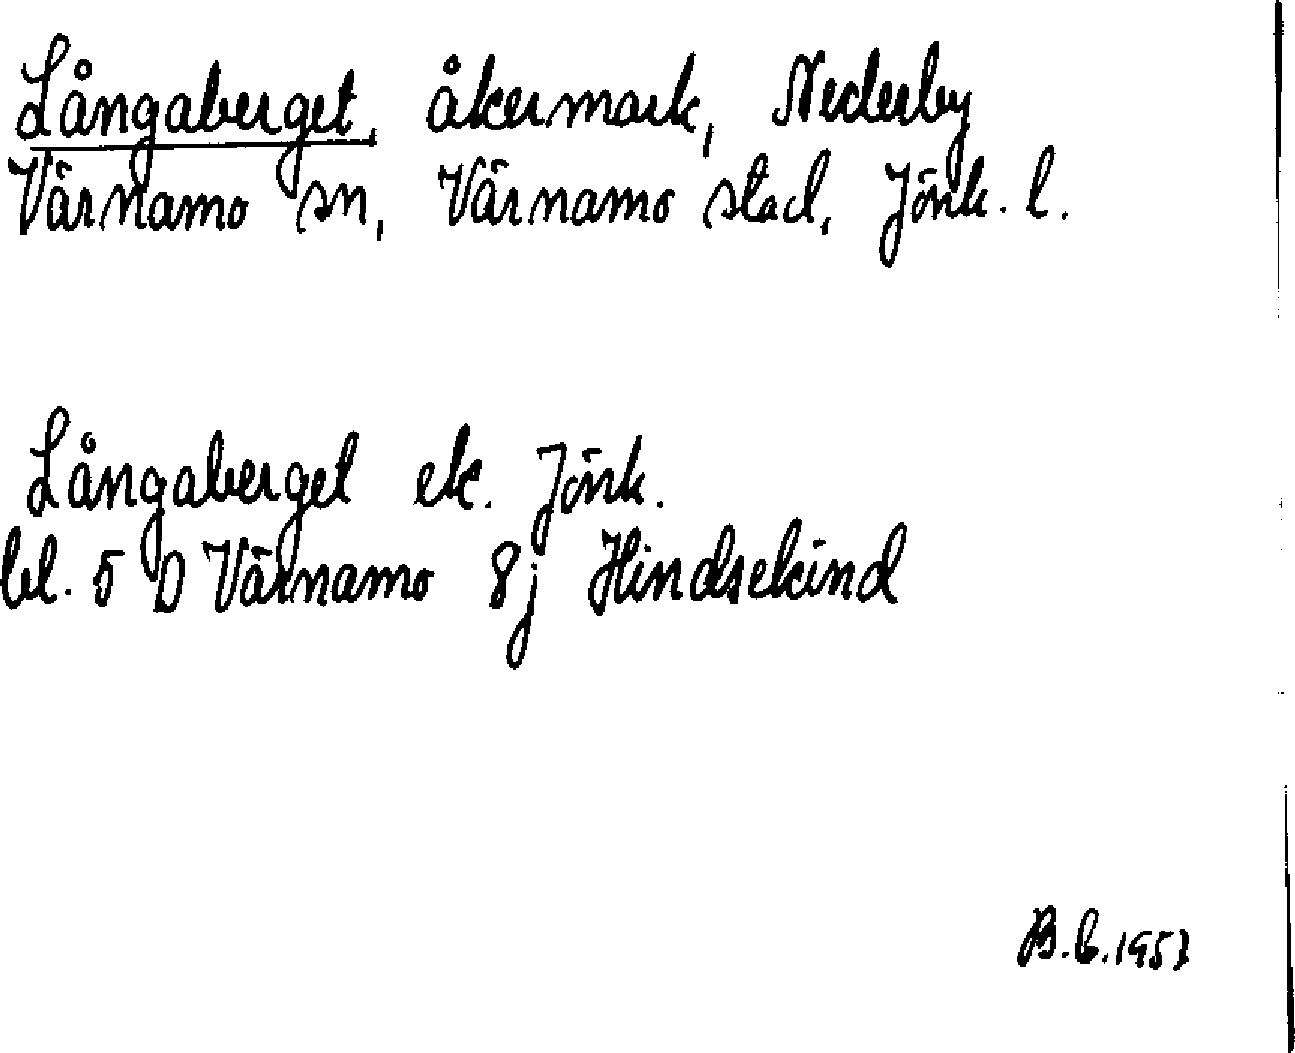 Långaberget, åkermark, Nederby
Värnamo sn, Värnamo stad, Jönk. l.
Långaberget ek. Jönk.
bl. 5 D Värnamo 8j Hindsekind
B.b.1957